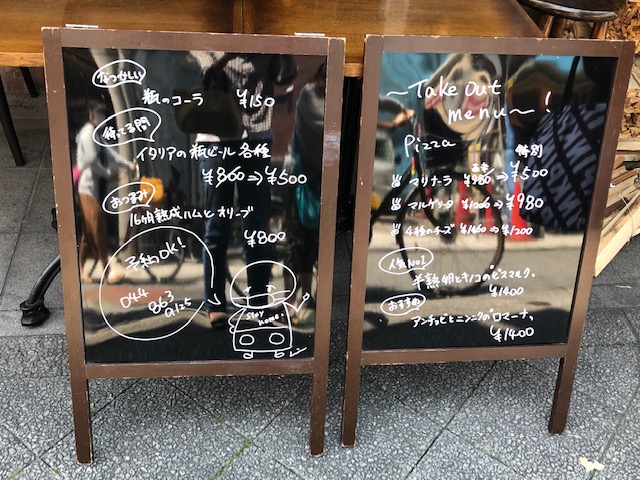 なつかしい
瓶のコーラ ¥150
待ってる間
イタリアの瓶ビール各種
¥800⇒¥500
おつまみ
16ヶ月熟成ハムとオリーブ
¥800
予約OK!
044
863
9125
Stay
home!
~Take Out
menu~!
Pizza 特別
マリナーラ ¥980⇒¥500
マルゲリータ ⇒¥980
4種のチーズ ⇒¥1200
人気No1
半熟卵とキノコのビスマルク
¥1400
おすすめ
アンチョビとニンニクのロマーナ
¥1400